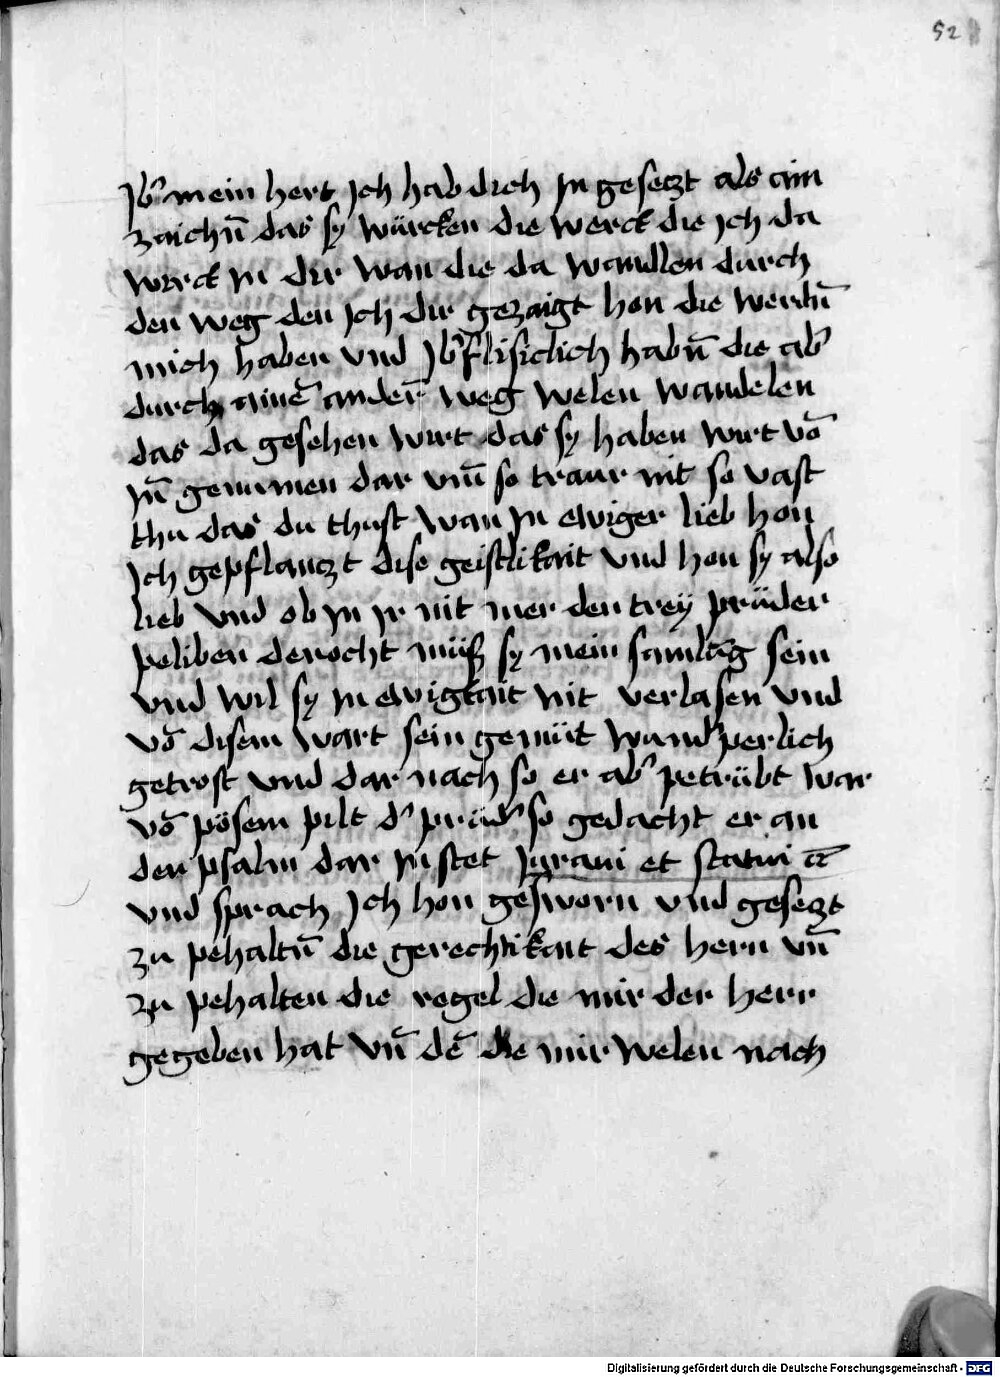 52
Jb᷑ mein hert Jch hab dich Jn gesetzt als ain
zaichn̄ das sy würcken die werck die Jch da
wirck Jn dir wan die da wandlen durch
den weg den Jch dir gezaigt hon die werdn̄
mich haben vnd Jb᷑flisiclich habn̄ die ab᷑
durch ainē ander̄ weg welen wandelen
das da gesehen wirt das sy haben wirt vō
Jn̄ genumen dar vm̄ so traur nit so vast
thu das du thust wan Jn ewiger lieb hon
Jch gepflanczt dise geistlikait vnd hon sy also
lieb vnd ob Jn Jr nit mer den trey prüder
peliben denocht müß sy mein samlūg sein
vnd wil sy Jn ewigkait nit verlasen vnd
vō disem wart sein gemüt wund᷑perlich
getrost vnd dar nach so er ab᷑ petrübt war
vō pösem pilt d᷑ prüd᷑ so gedacht er an
den psalm dar Jn stet Jurani et statui c̄
vnd sprach Jch hon gesworn vnd gesetzt
zu pehaltn̄ die gerechtikait des hern vn̄
zu pehalten die regel die mir der herr
gegeben hat vn̄ dē die mir welen nach
Digitalisierung gefördert durch die Deutsche Forschungsgemeinschaft - DFG